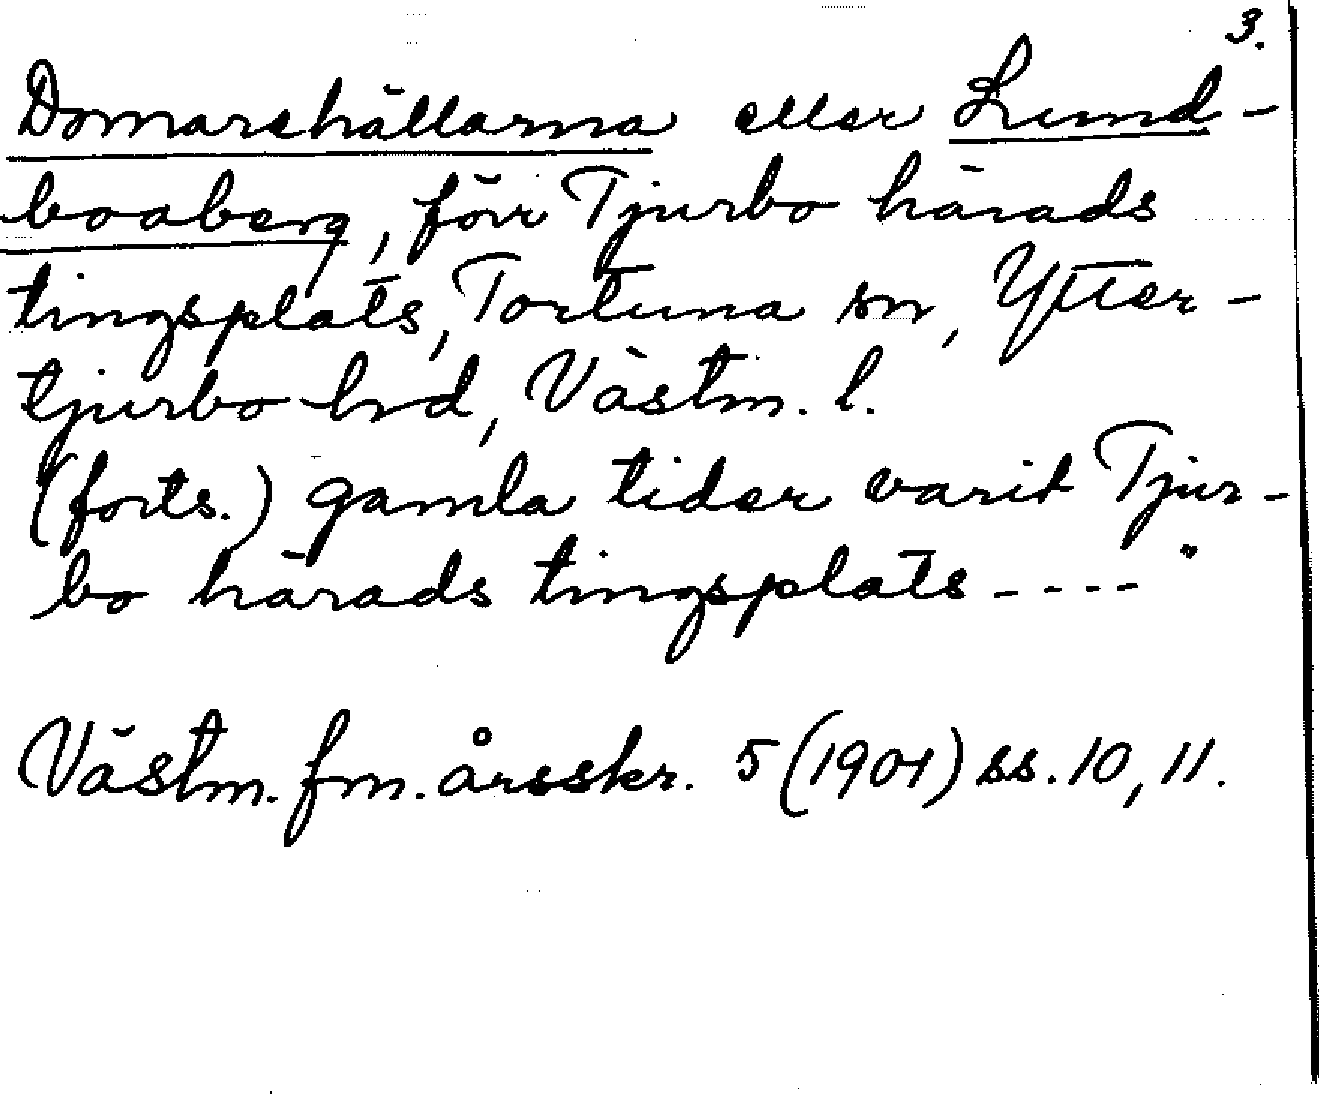 3.
Domarehällarna eller Lund-
boaberg, förr Tjurbo härads
tingsplats, Tortuna sn, Ytter-
tjurbo hd, Västm. l.
(forts.) gamla tider varit Tjur-
bo härads tingsplats ----"
Västm. fm. årsskr. 5 (1901) ss. 10, 11.